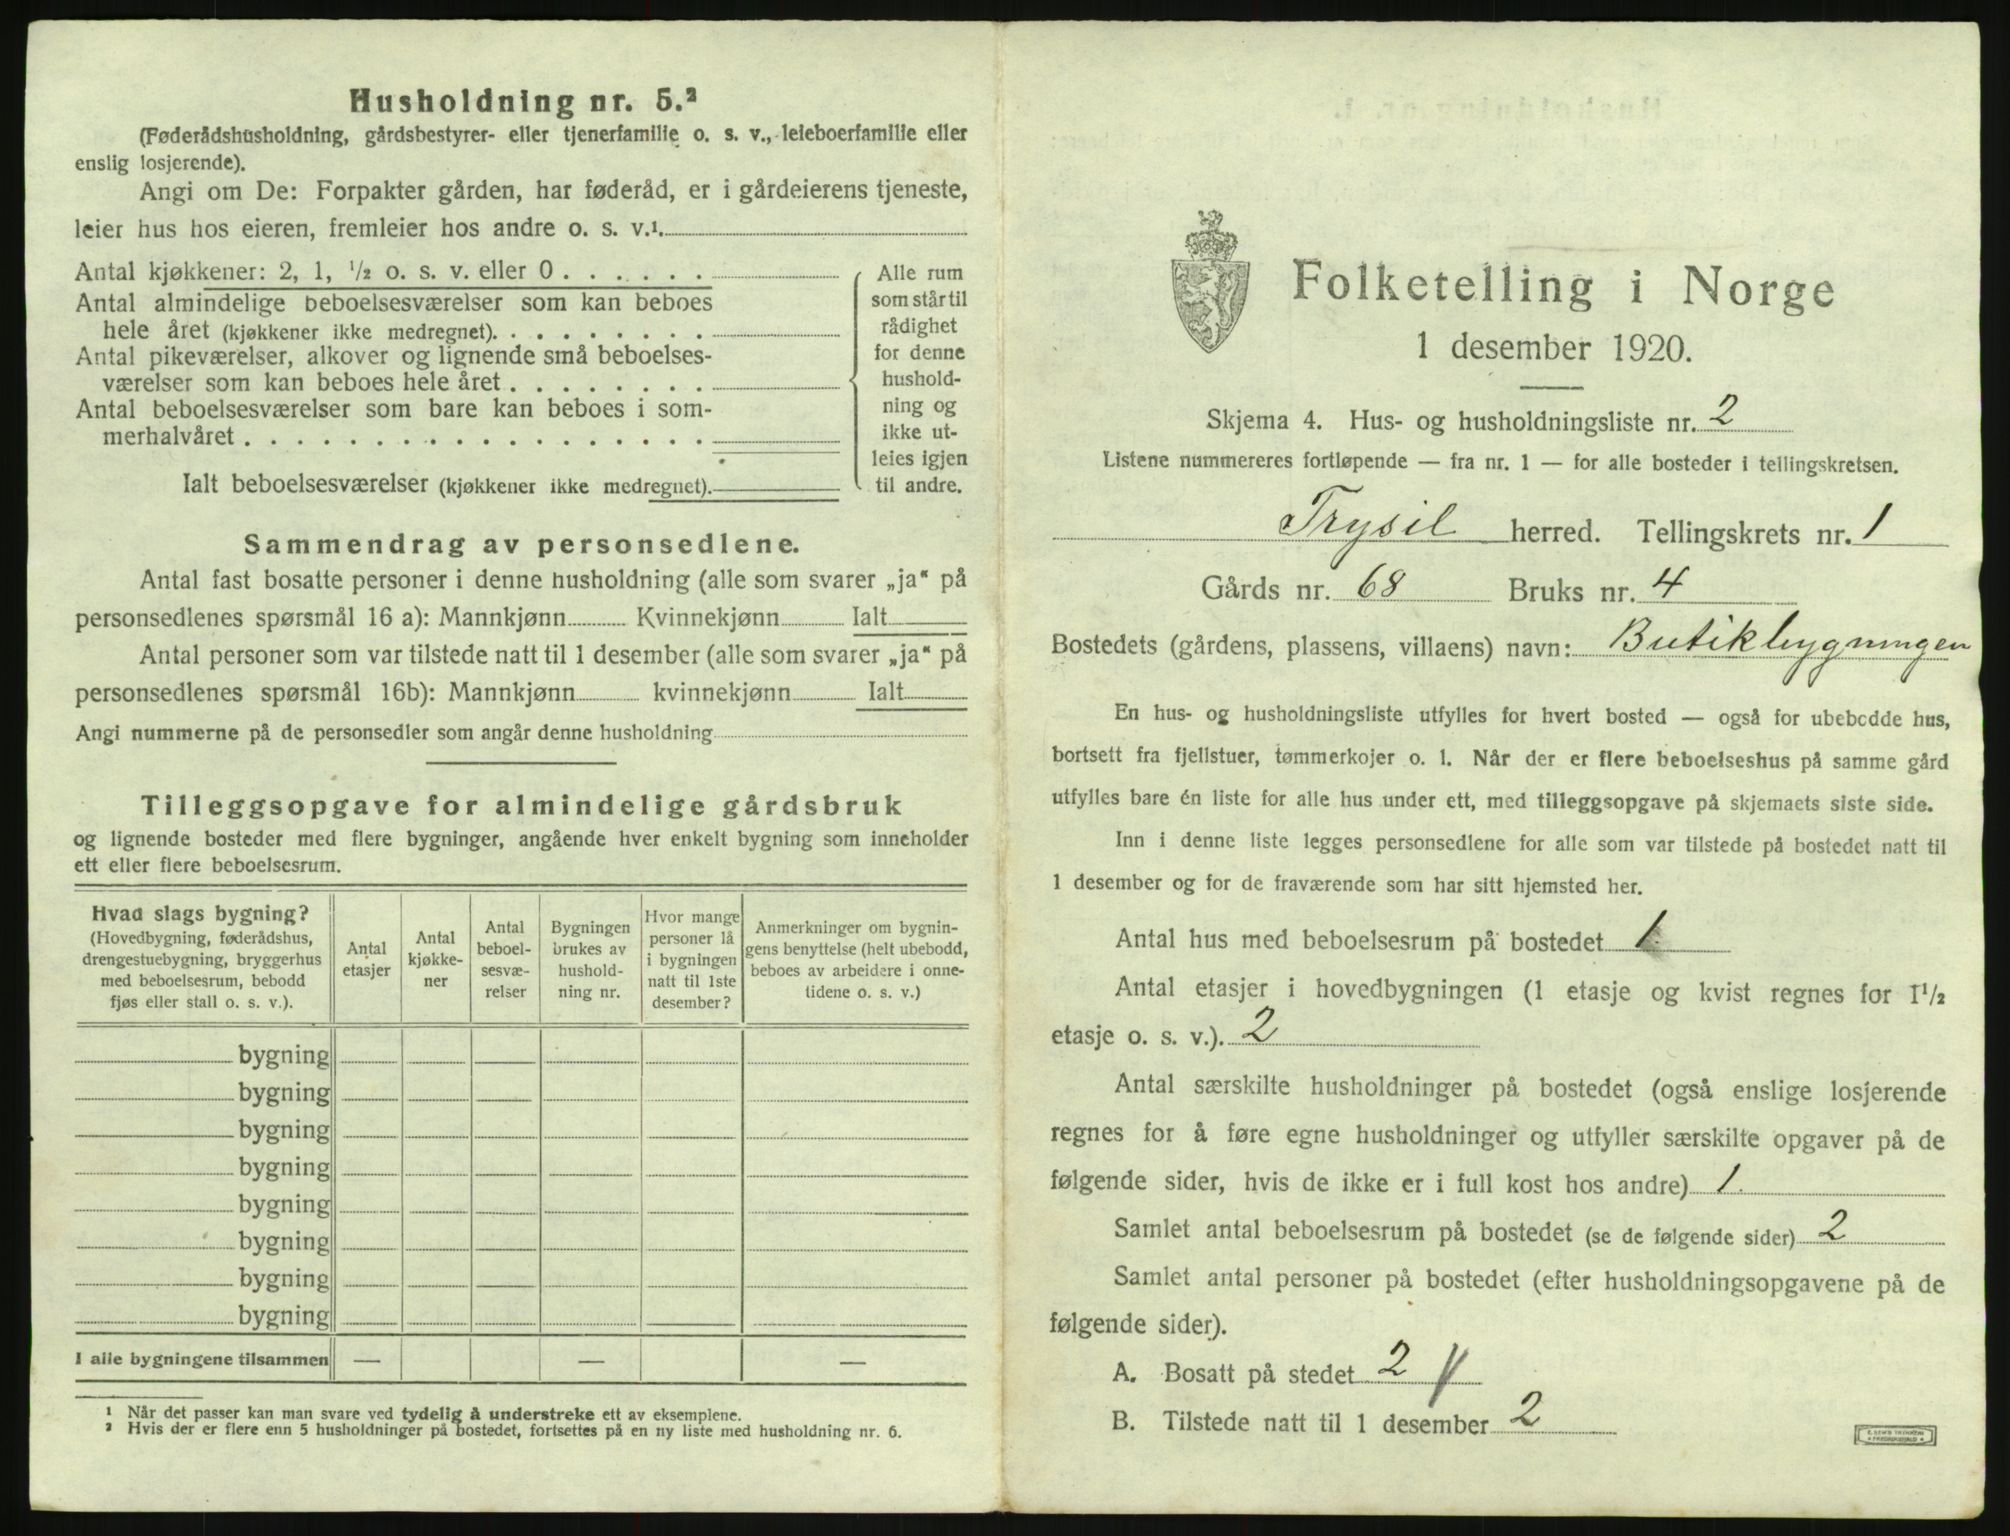 Husholdning nr. 5.²
(Føderådshusholdning, gårdsbestyrer- eller tjenerfamilie o. s. v., leieboerfamilie eller
enslig losjerende).
Angi om De: Forpakter gården, har føderåd, er i gårdeierens tjeneste,
leier hus hos eieren, fremleier hos andre o. s. v.¹.
Antal kjøkkener: 2, 1, ½ o. s. v. eller 0 . . . . . .
Antal almindelige beboelsesværelser som kan beboes
hele året (kjøkkener ikke medregnet). . . . . . . . .
Antal pikeværelser, alkover og lignende små beboelses-
værelser som kan beboes hele året . . . . . . . .
Antal beboelsesværelser som bare kan beboes i som-
merhalvåret . . . . . . . . . . . . . . . . . .
Ialt beboelsesværelser (kjøkkener ikke medregnet).
Alle rum
som står til
rådighet
for denne
hushold-
ning og
ikke ut-
leies igjen
til andre.
Sammendrag av personsedlene.
Antal fast bosatte personer i denne husholdning (alle som svarer „ja“ på
personsedlenes spørsmål 16 a): Mannkjønn Kvinnekjønn Ialt
Antal personer som var tilstede natt til 1 desember (alle som svarer „ja“ på
personsedlenes spørsmål 16b): Mannkjønn kvinnekjønn Ialt
Angi nummerne på de personsedler som angår denne husholdning
Tilleggsopgave for almindelige gårdsbruk
og lignende bosteder med flere bygninger, angående hver enkelt bygning som inneholder
ett eller flere beboelsesrum.
Hvad slags bygning?
(Hovedbygning, føderådshus,
drengestuebygning, bryggerhus
med beboelsesrum, bebodd
fjøs eller stall o. s. v.).
Antal
etasjer
Antal
kjøkke-
ner
Antal
beboel-
sesvæ-
relser
Bygningen
brukes av
hushold-
ning nr.
Hvor mange
personer lå
i bygningen
natt til 1ste
desember?
Anmerkninger om bygnin-
gens benyttelse (helt ubebodd,
beboes av arbeidere i onne-
tidene o. s. v.)
bygning
bygning
bygning
bygning
bygning
bygning
bygning
bygning
I alle bygningene tilsammen — — —
¹ Når det passer kan man svare ved tydelig å understreke ett av eksemplene.
² Hvis der er flere enn 5 husholdninger på bostedet, fortsettes på en ny liste med husholdning nr. 6.
Folketelling i Norge
1 desember 1920.
Skjema 4. Hus- og husholdningsliste nr. 2
Listene nummereres fortløpende — fra nr. 1 — for alle bosteder i tellingskretsen.
Trysil herred. Tellingskrets nr. 1
Gårds nr. 68 Bruks nr. 4
Bostedets (gårdens, plassens, villaens) navn: Butikbygningen
En hus- og husholdningsliste utfylles for hvert bosted — også for ubebodde hus,
bortsett fra fjellstuer, tømmerkojer o. l. Når der er flere beboelseshus på samme gård
utfylles bare én liste for alle hus under ett, med tilleggsopgave på skjemaets siste side.
Inn i denne liste legges personsedlene for alle som var tilstede på bostedet natt til
1 desember og for de fraværende som har sitt hjemsted her.
Antal hus med beboelsesrum på bostedet 1.
Antal etasjer i hovedbygningen (1 etasje og kvist regnes for 1½
etasje o. s. v.). 2
Antal særskilte husholdninger på bostedet (også enslige losjerende
regnes for å føre egne husholdninger og utfyller særskilte opgaver på de
følgende sider, hvis de ikke er i full kost hos andre) 1.
Samlet antal beboelsesrum på bostedet (se de følgende sider) 2
Samlet antal personer på bostedet (efter husholdningsopgavene på de
følgende sider).
A. Bosatt på stedet 2
B. Tilstede natt til 1 desember 2